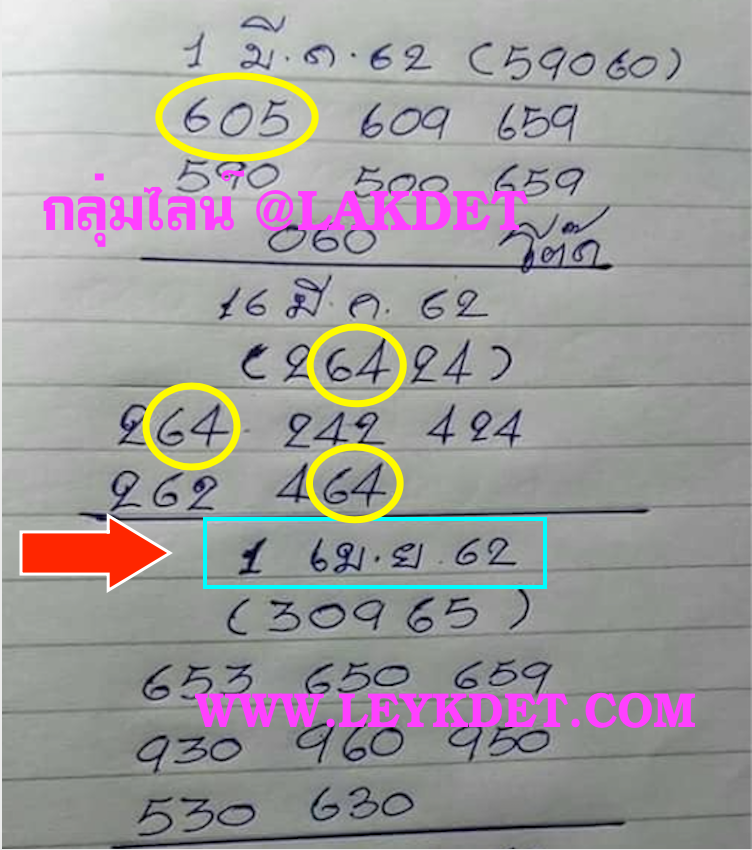 1 มี.ค.62 (59060)
605 609 659
590 500 659
กลุ่มไลน์ @LAKDET
060
16 มี.ค. 62
(26424)
264 242 424
262 464
1 เม.ย.62
(30965)
653 650 659
WWW.LEYKDET.COM
930 960 950
530 630